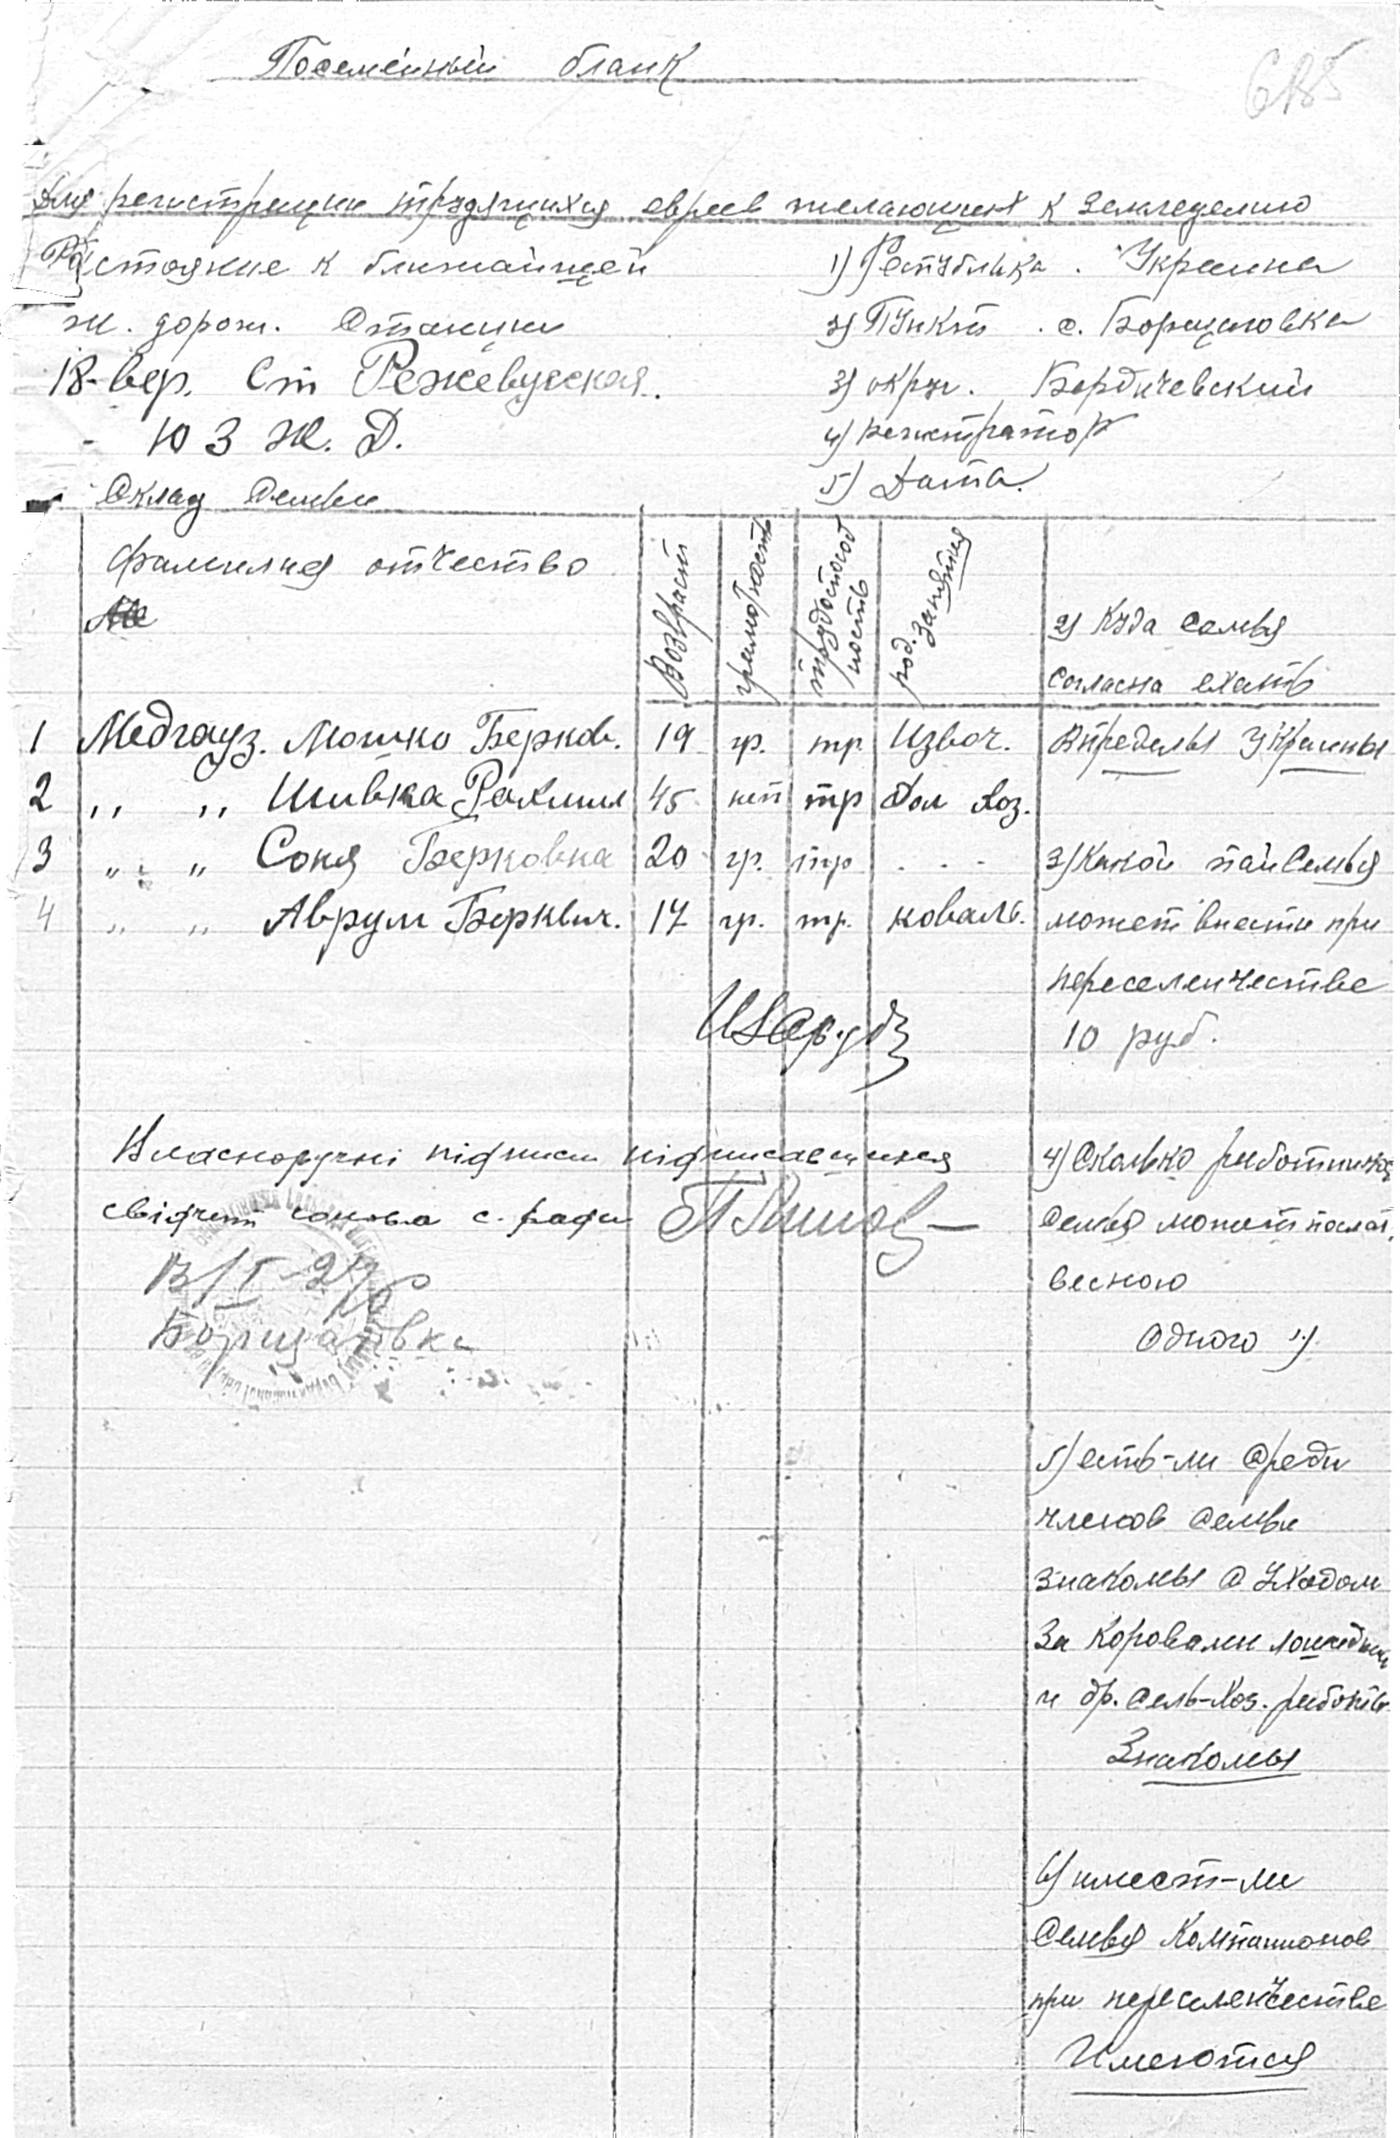 Посемейный бланк
685
Для регистрации трудящихся евреев желающих к земледелию
Растояние к ближайщей
ж. дорож. Станции
18-вер. Ст Режевусская.
- Ю З Ж. Д.
Склад Семьи
1) Республика. Украина
2) Пункт. с. Борщаговка
3) округ. Бердичевский
4) Регистратор
5) Дата.
фамилия отчество
Возвраст
грамотность
трудоспособ
ность
род. занятия
2) Куда семья
согласна ехать
1 Медгауз. Мошко Берков. 19 гр. тр Извоч. Впределы Украины
2 ,, ,, Шивка Рахмил 45 нгп тр Дом хоз.
3 ,, ,, Соня Берковна 20 гр. тр . . - 3) Какой пай Семья
4 ,, ,, Аврум Беркович. 17 гр. тр. коваль. может внести при
переселенчестве
10 руб.
Власноручні підписи підписавшихся
свідчит голова с. ради
13/I-27
Борщаговка
4) Сколько работников
Семья может послат,
весною
Одного 1)
5) есть-ли Среди
членов Семьи
знакомы С Уходом
За Коровами лошадьми
и др. Сель-Хоз. работы
Знакомы
6) имеет-ли
Семья Компанионов
при переселенчестве
Имеются